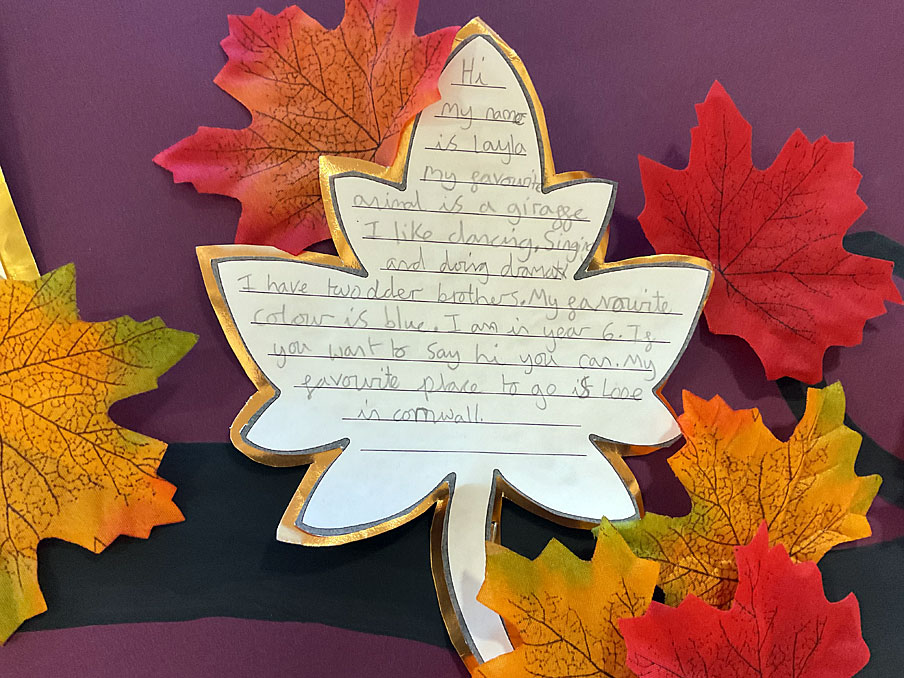 Hi
My name
is Layla
My favourite
animal is a giraffe
I like dancing, Singin
and doing dramas
I have two older brothers. My favourite
colour is blue. I am in year 6. If
you want to say hi you can. My
favourite place to go is Looe
in cornwall.